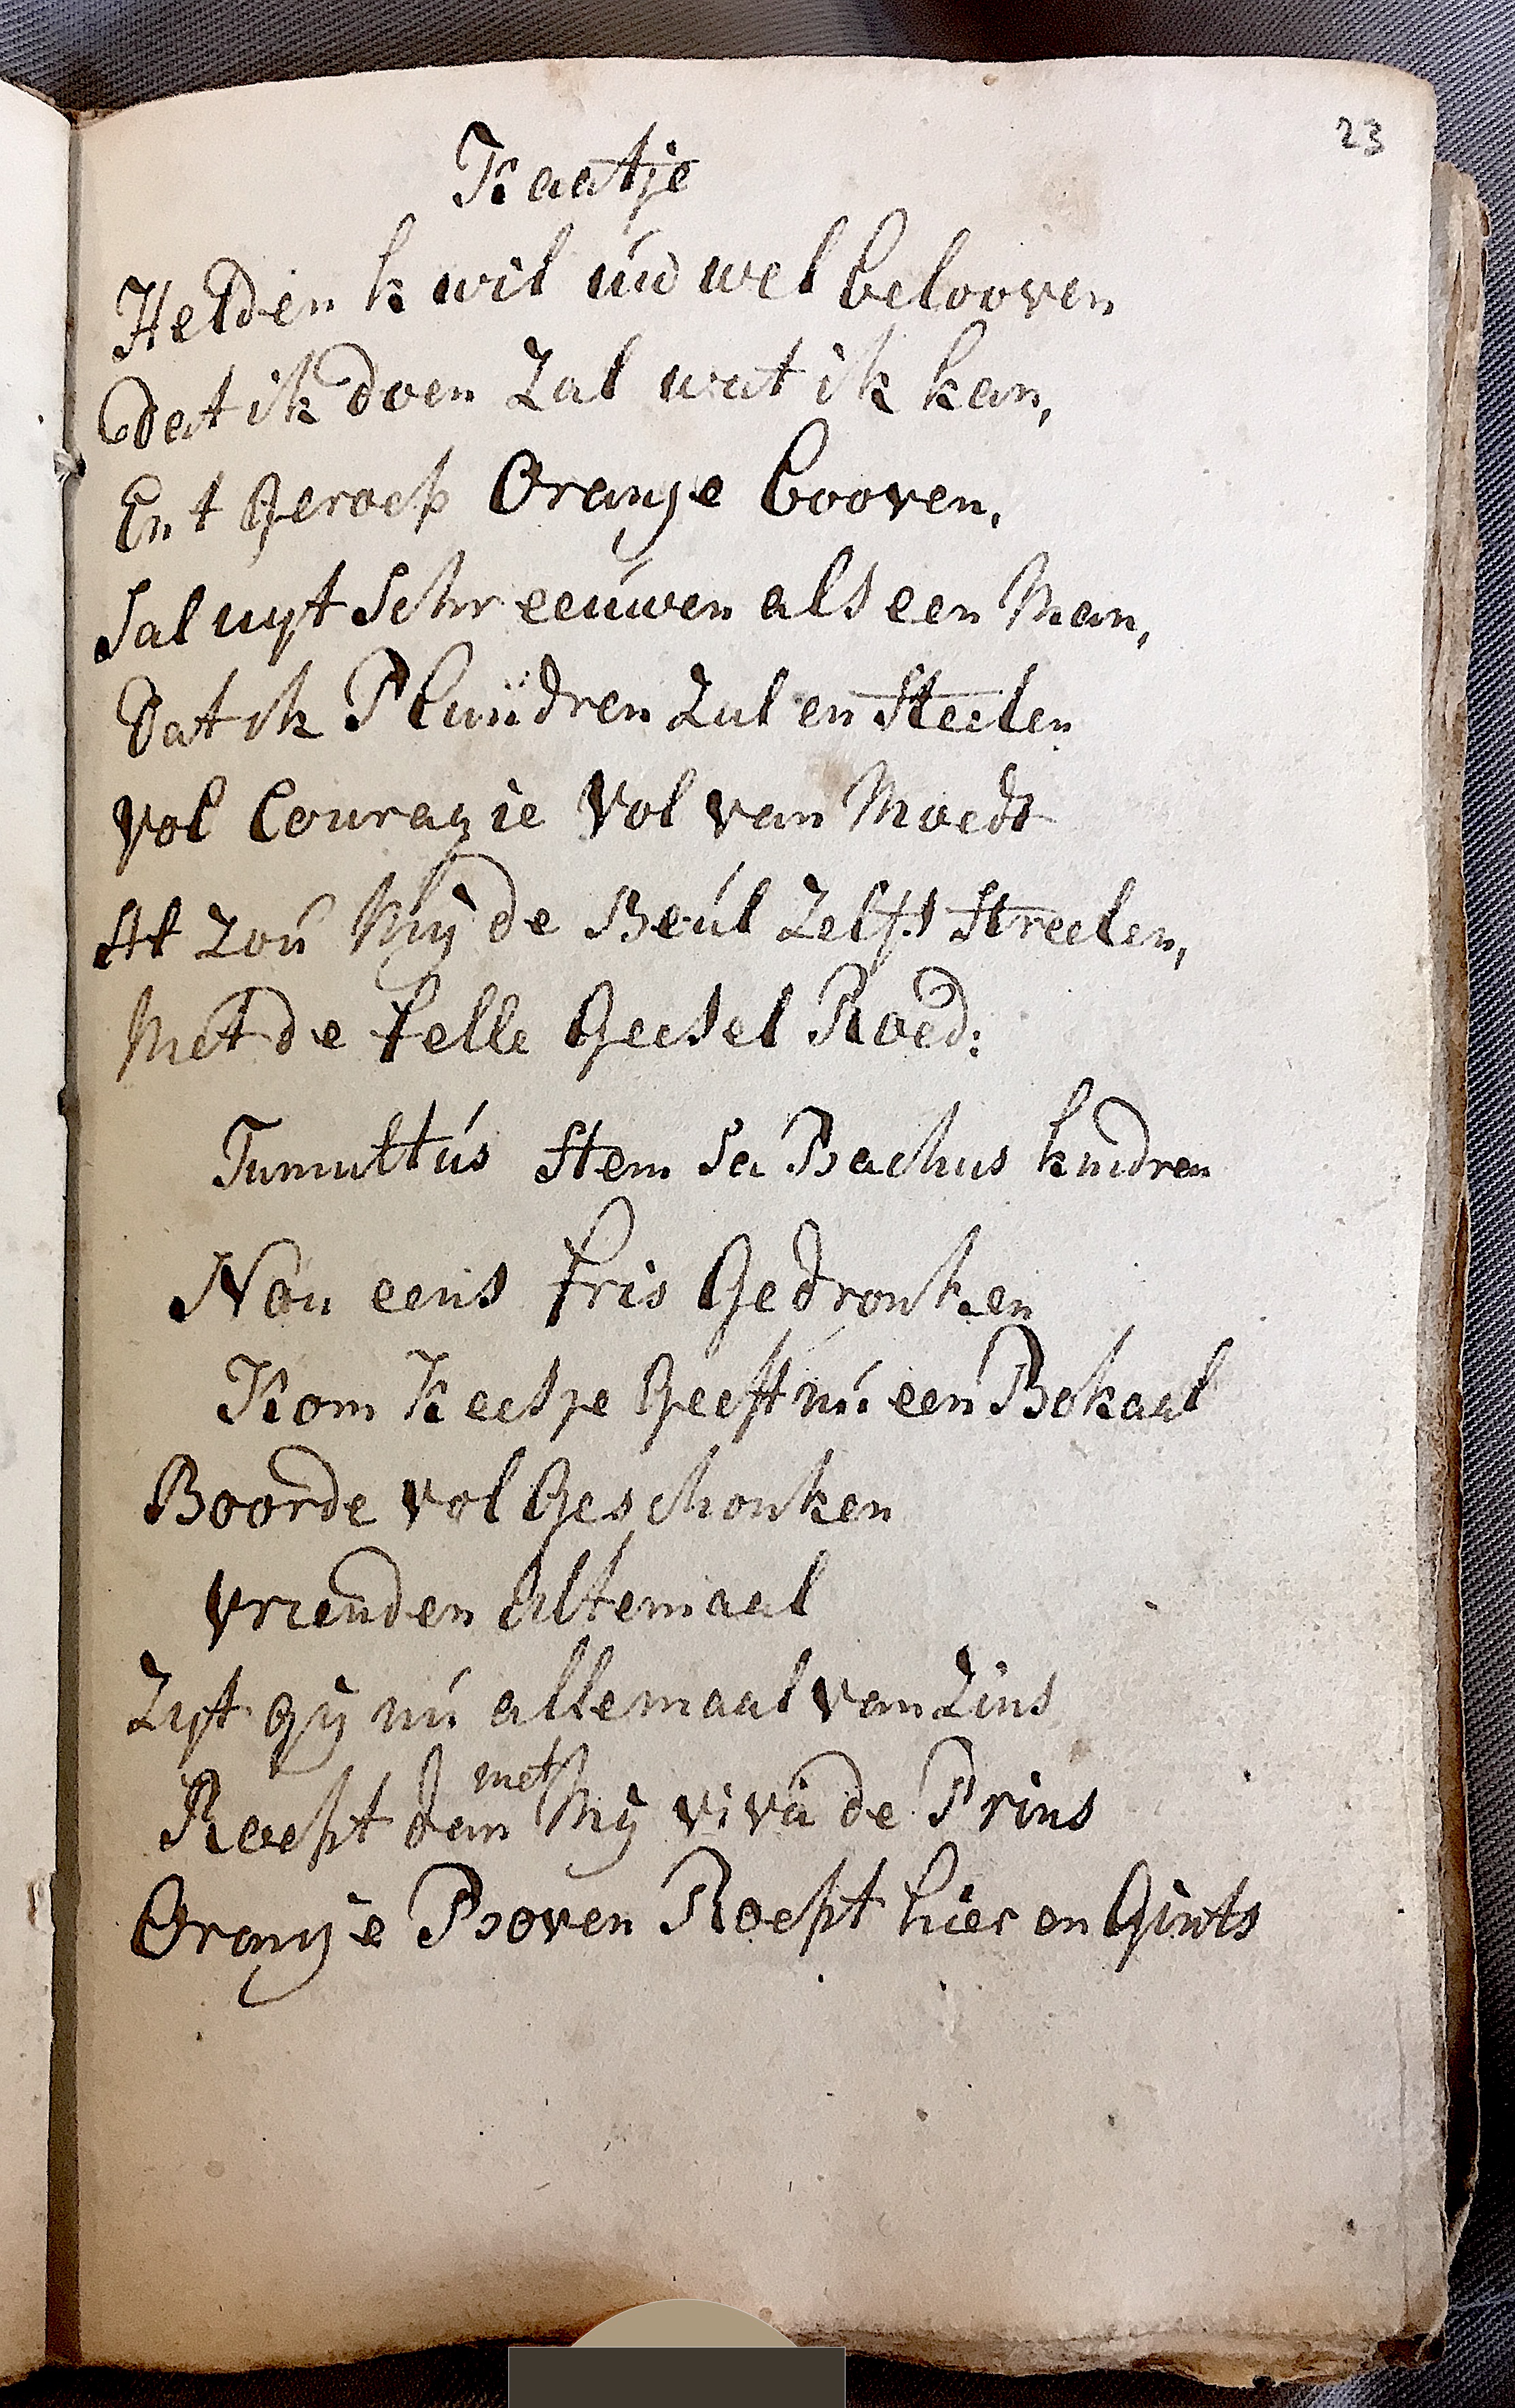 23
Kaatje
Helden k wil uw wel belooven
Dat ik doen Zal wat ik kan,
En t Geroep Oranje booven,
Sal uyt Schreeuwen als een Man,
Dat ik Plundren Zul en Steelen
Vol Couragie Vol van Moedt
Al Zou Mij de Beul Zelfs Streelen,
Met de felle Geesel Roed:
Tumultus Stem Sa Bachus kindren
Nou eens fris Gedronken
Kom Keesje Geeft nu een Bokaal
Boorde vol Geschonken
Vrienden Altemaal
Zyt gij nu allemaal van Zins
Roept dan met Mij viva de Prins
Oranje Boven Roept hier en Gints